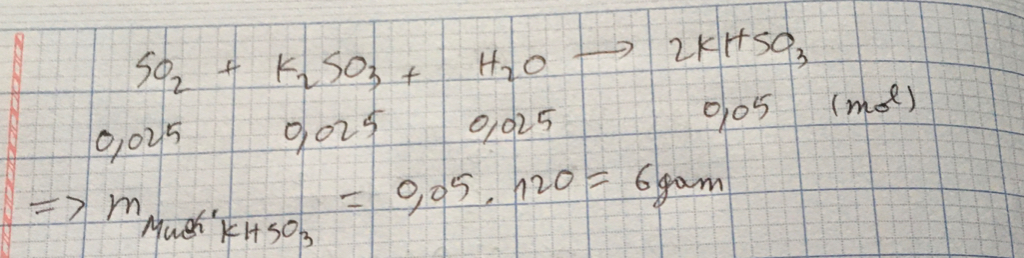 SO₂ + K₂SO₃ + H₂O → 2KHSO₃
0,025 0,025 0,025 0,05 (mol)
=> m Muối KHSO₃ = 0,05 . 120 = 6 gam